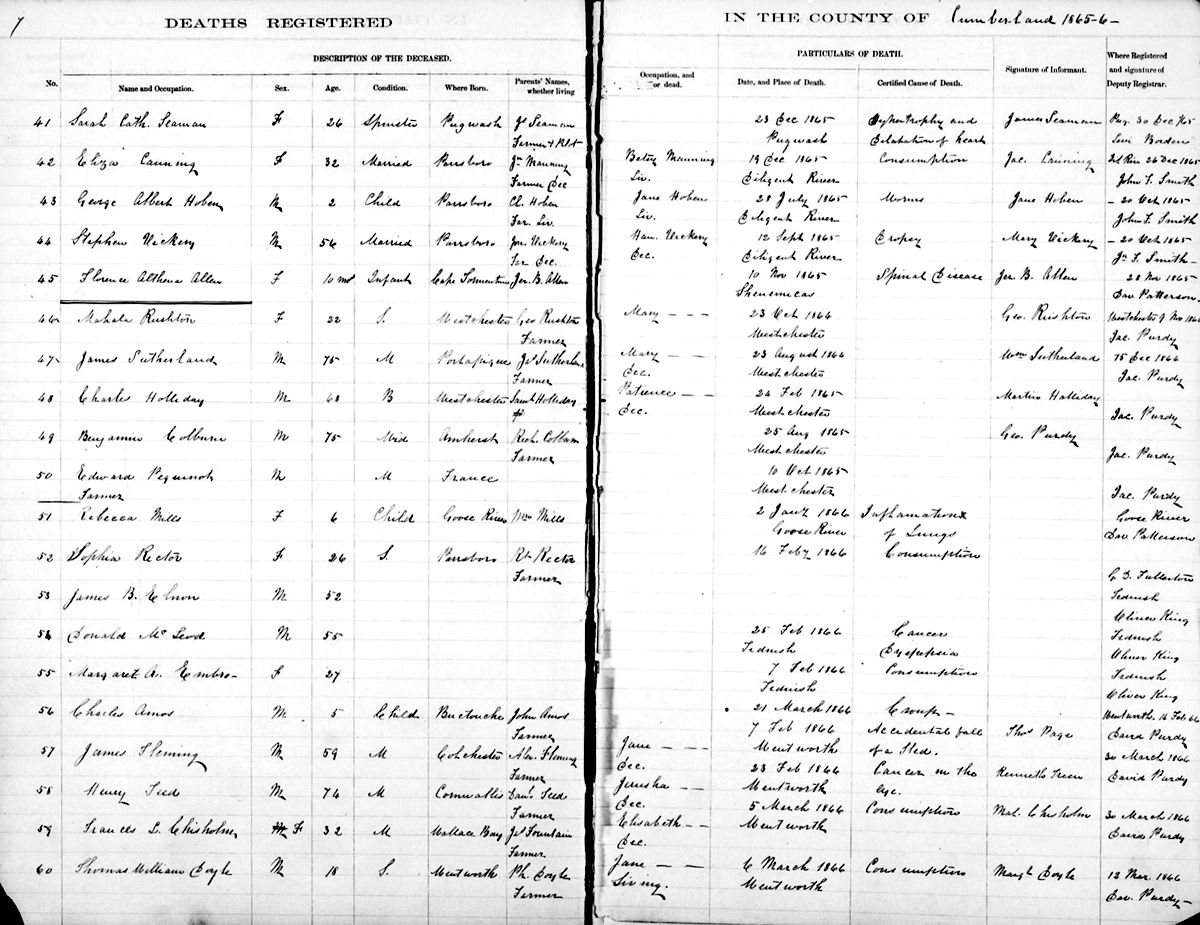 7
DEATHS REGISTERED IN THE COUNTY OF Cumberland 1865-6-
DESCRIPTION OF THE DECEASED. PARTICULARS OF DEATH.
No. Name and Occupation. Sex. Age. Condition. Where Born. Parents' Names, whether living Occupation, and or dead. Date, and Place of Death. Certified Cause of Death. Signature of Informant. Where Registered and signature of Deputy Registrar.
41 Sarah Cath. Seaman F 26 Spinster Pugwash Js Seaman 23 Dec 1865 Hypertrophy and James Seaman Pug. 30 Dec 1865
Farmer Pugwash Dilatation of heart Levi Borden
42 Eliza Canning F 32 Married Parrsboro Jn Manning Betsy Manning 19 Dec 1865 Consumption Jac. Canning 26 Dec 1865
Farmer Dec Liv. Diligent River John F. Smith
43 George Albert Hoben M 2 Child Parrsboro Ch. Hoben Jane Hoben 28 July 1865 Worms Jane Hoben - 20 Oct 1865
Far. Liv. Liv. Diligent River John F. Smith
44 Stephen Vickery M 56 Married Parrsboro Jon. Vickery Han. Vickery 12 Sept 1865 Dropsy Mary Vickery - 20 Oct 1865
Far Dec. Dec. Diligent River Jn F. Smith -
45 Florence Althena Allen F 10 mos Infant Cape Tormentine Jer. B. Allen 10 Nov 1865 Spinal Disease Jer. B. Allen 28 Nov 1865
Shenimicas Dav. Patterson.
46 Mahala Rushton F 22 S. Westchester Geo Rushton Mary - - 23 Oct 1866 Geo. Rushton Westchester 9 Nov 1866
Farmer Westchester Jac. Purdy
47 James Sutherland M 75 M Portapique Js Sutherland Mary - - 23 August 1866 Wm Sutherland 15 Dec 1866
Farmer Dec. Westchester Jac. Purdy
48 Charles Holleday M 68 B Westchester Saml Holleday Patience - - 24 Feb 1865 Martin Halliday
Dec. Westchester Jac. Purdy
49 Benjamin Colburn M 75 Wid Amherst Rich. Colburn 25 Aug 1865 Geo. Purdy
Farmer Westchester Jac. Purdy
50 Edward Pequinot M M France 10 Oct 1865
Farmer Westchester Jac. Purdy
51 Rebecca Mills F 6 Child Goose River Wm Mills 2 Jany 1866 Inflamation Goose River
Goose River of Lungs Dav Patterson
52 Sophia Rector F 26 S. Parrsboro Rt. Rector 16 Feby 1866 Consumption
Farmer G. D. Fullerton
53 James B. Elnon M 52 Tidnish
Oliver King
54 Donald McLeod M 55 25 Feb 1866 Cancer Tidnish
Tidnish Dyspepsia Oliver King
55 Margaret A. Embro- F 27 7 Feb 1866 Consumption Tidnish
Tidnish Oliver King
56 Charles Amos M 5 Child Buctouche John Amos 21 March 1866 Croup - Wentworth. 16 Feb 66
Farmer 7 Feb 1866 Accidental fall Thos Page David Purdy
57 James Fleming M 59 M Colchester Alex. Fleming Jane - - - Wentworth of a Sled. 30 March 1866
Farmer Dec. 23 Feb 1866 Cancer in the Kenneth Treen David Purdy
58 Henry Teed M 74 M Cornwallis Danl Teed Jerusha - - Wentworth Eye.
Farmer Dec. 5 March 1866 Consumption Mal. Chisholm 30 March 1866
59 Frances L. Chisholm F 32 M Wallace Bay Js Fountain Elisabeth - - Wentworth David Purdy
Farmer Dec.
60 Thomas William Doyle M 18 S. Wentworth Ph. Doyle Jane - - 6 March 1866 Consumption Margt Doyle 12 Mar. 1866
Farmer Living. Wentworth Dav. Purdy -